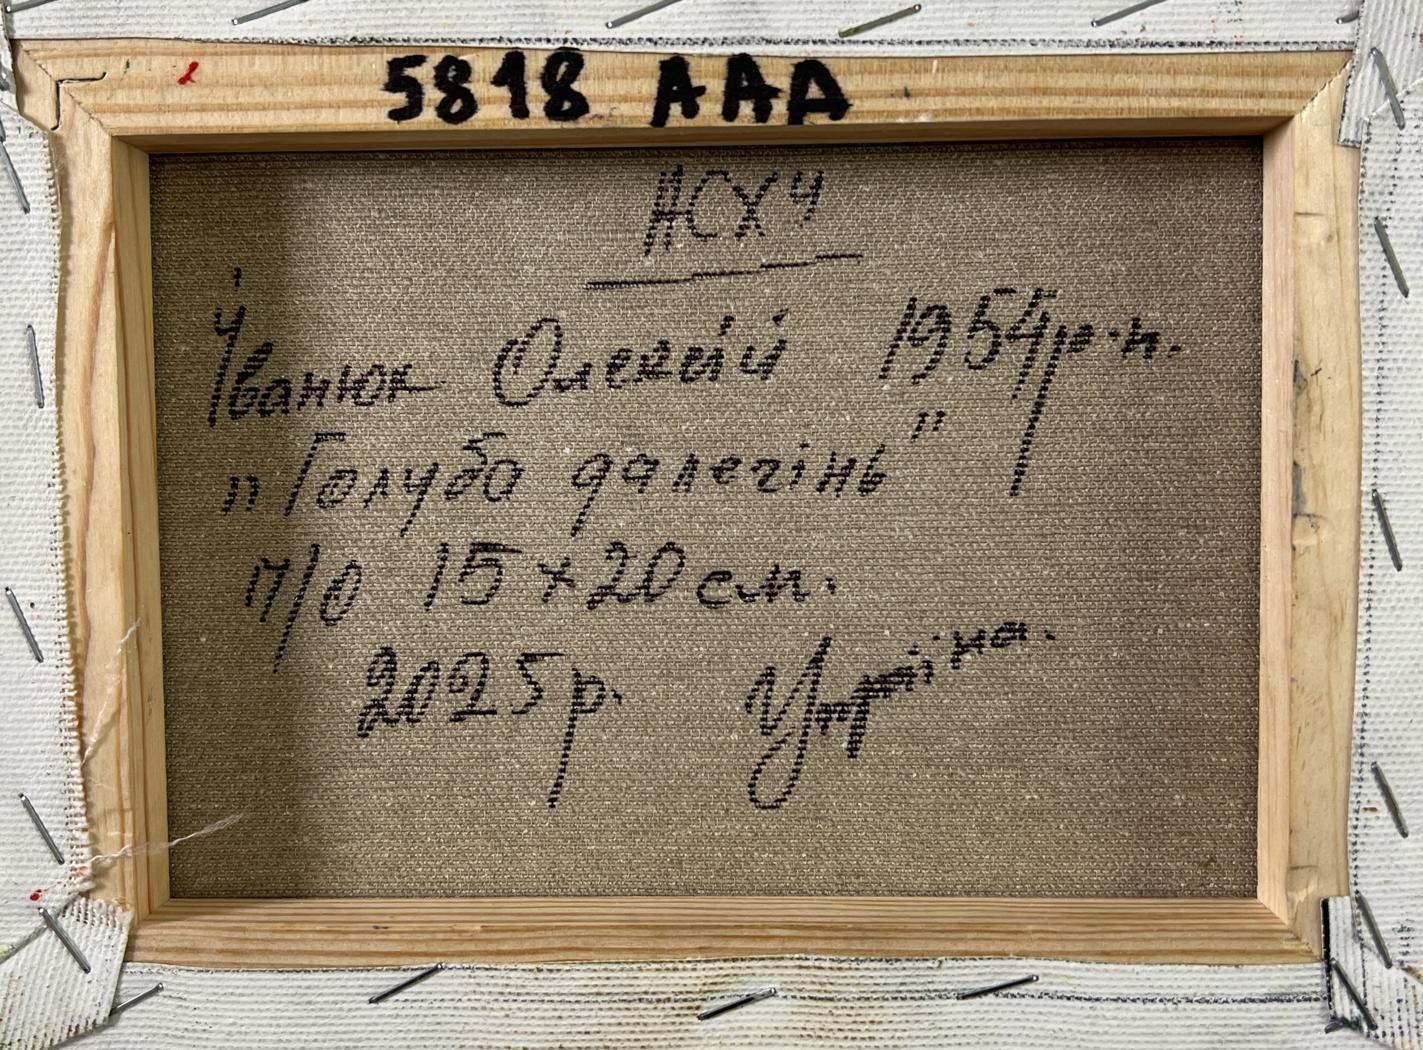 5818 AAA
НСХУ
Іванюк Олексій 1954 р.н.
„Голуба далечінь"
п/о 15×20 см.
2025 р. Україна.